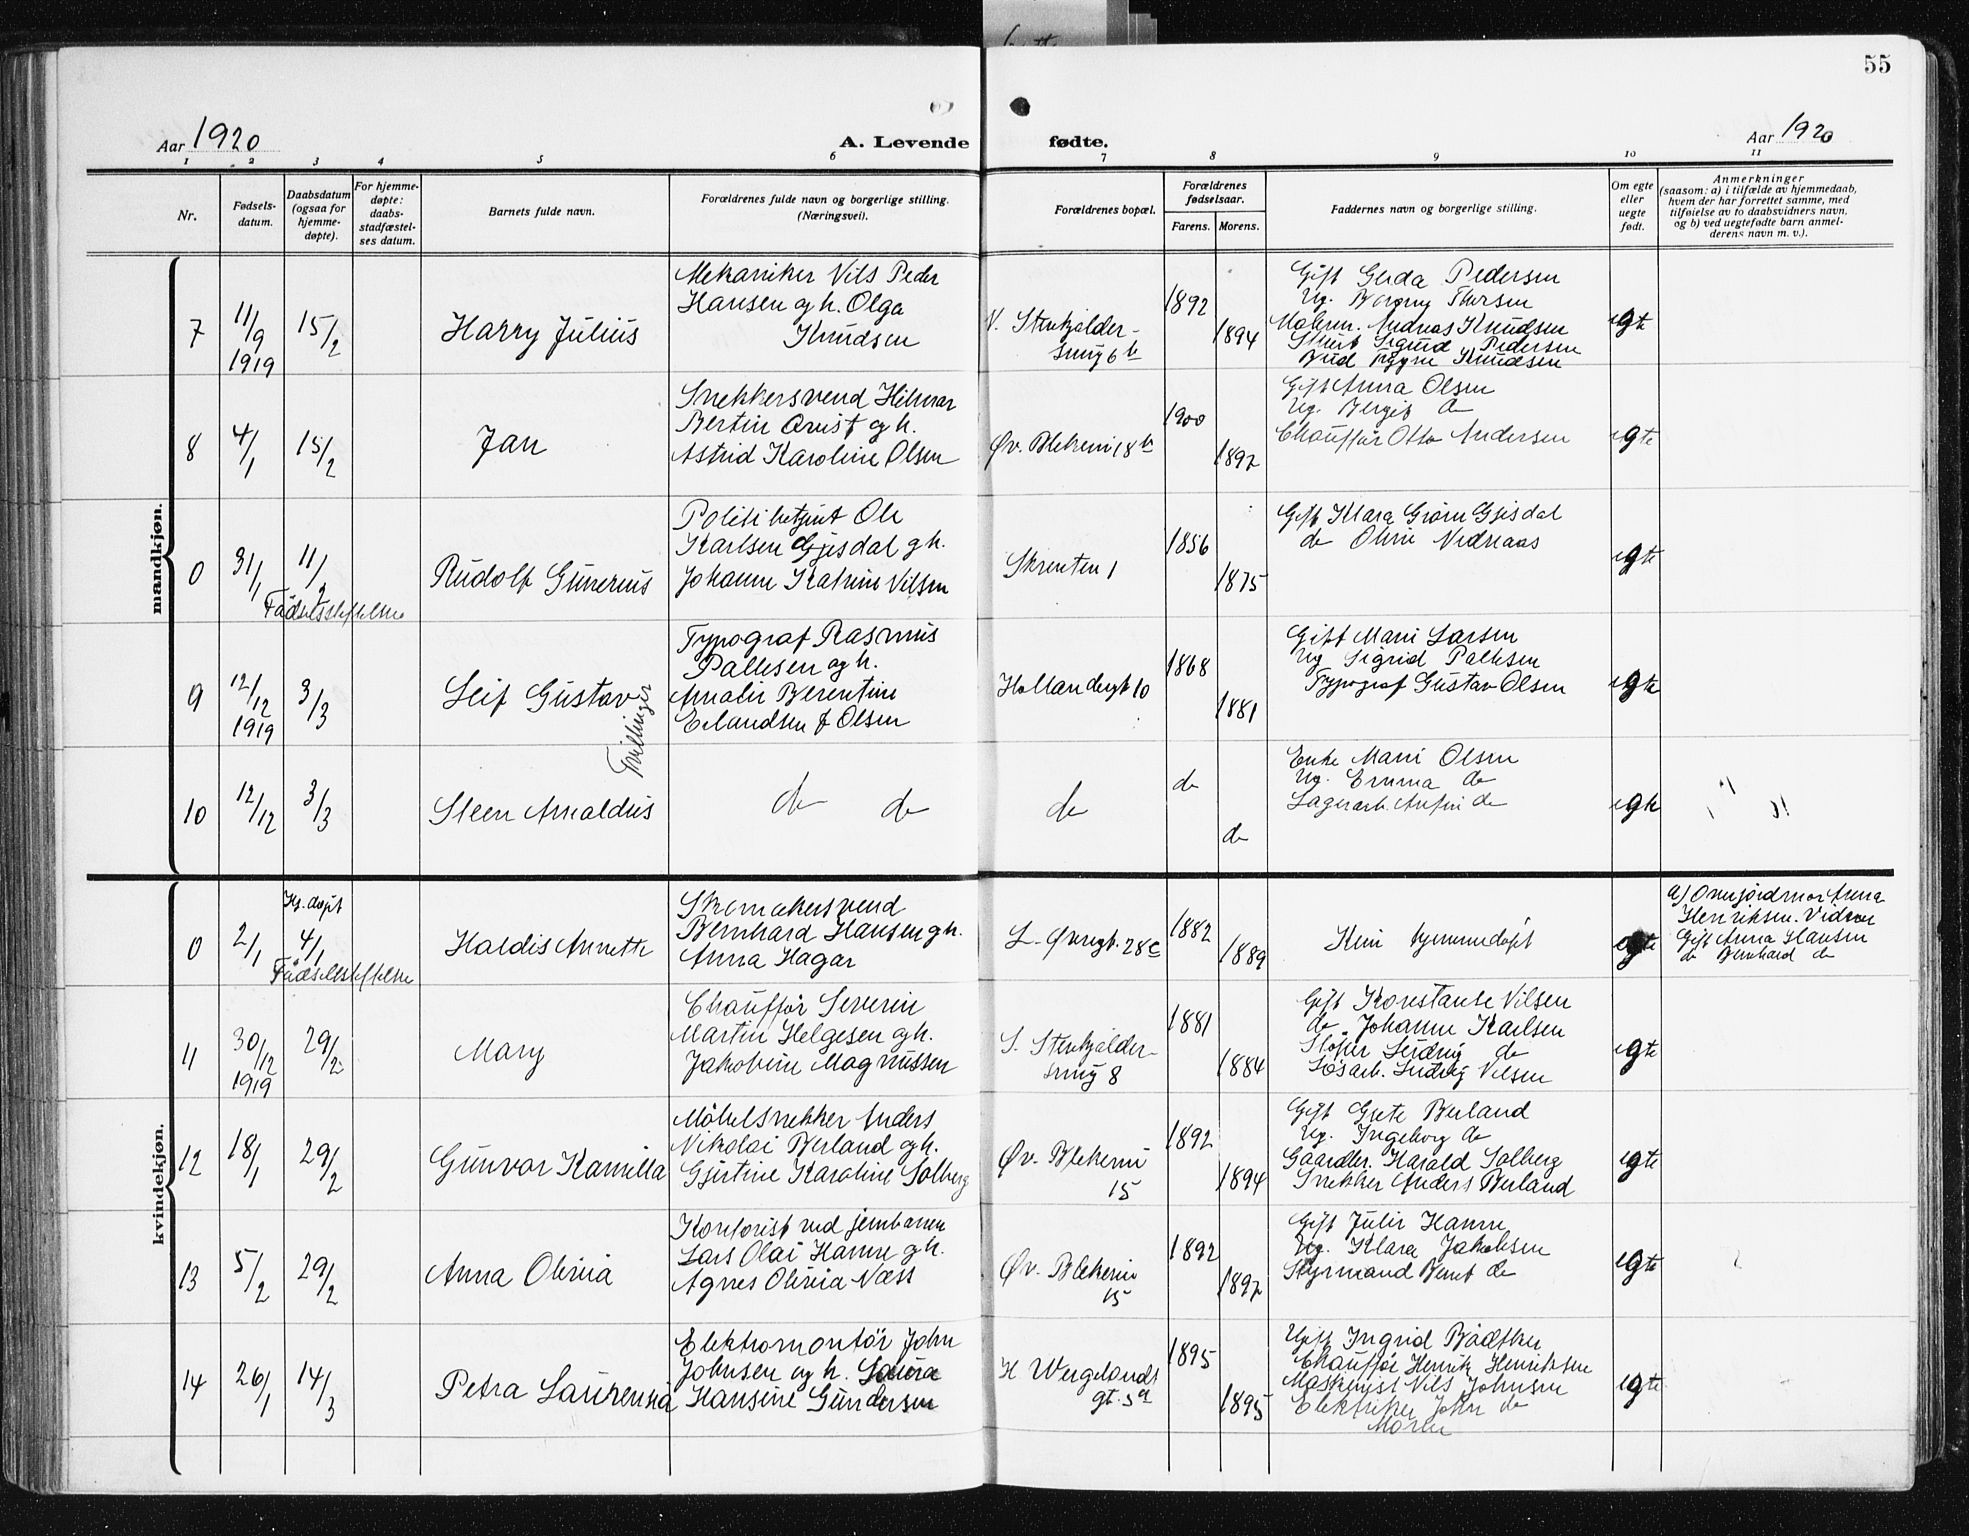 55
Aar 1920
A. Levende fødte.
Aar 1920
1 2 3 4 5 6 7 8 9 10 11
Nr.
Fødsels-
datum.
Daabsdatum
(ogsaa for
hjemme-
døpte).
For hjemme-
døpte:
daabs-
stadfæstel-
ses datum.
Barnets fulde navn.
Forældrenes fulde navn og borgerlige stilling.
(Næringsvei).
Forældrenes bopæl.
Forældrenes
fødselsaar.
Farens. Morens.
Faddernes navn og borgerlige stilling.
Om egte
eller
uegte
født.
Anmerkninger
(saasom: a) i tilfælde av hjemmedaab,
hvem der har forrettet samme, med
tilføielse av to daabsvidners navn,
og b) ved uegtefødte barn anmel-
derens navn m. v.).
mandkjøn.
7
11/9
1919
15/2
Harry Julius
Mekaniker Nils Peder
Hansen og h. Olga
Knudsen
V. Stenkjelder-
smug 6 b
1892
1894
Gift Gerda Pedersen
Ug. Borgny Thorsen
Andreas Knudsen
Sigurd Pedersen
Bud Trygve Knudsen
egte
8
4/1
15/2
Jan
Snekkersvend Hilmar
Bertin Qvist og h.
Astrid Karoline Olsen
Øv. Blekevei 18 b
1900
1892
Gift Anna Olsen
Ug. Bergit do
Chauffør Otto Andersen
egte
0
31/1
11/2
Fødselsstiftelsen
Rudolf Gunerius
Politibetjent Ole
Karlsen Gjesdal og h.
Johanne Katrine Nilsen
Skrenten 1
1856
1875
Gift Klara Grøm Gjesdal
do Oline Nednaas
egte
9
12/12
1919
3/3
Leif Gustav
Tvillinger
Typograf Rasmus
Pallesen og h.
Amalie Berentine
Erlandsen f Olsen
Hollendergt 10
1868
1881
Gift Marie Larsen
Ug Sigrid Pallesen
Typograf Gustav Olsen
egte
10
12/12
3/3
Steen Arnaldus
do do
do
do
do
Enke Marie Olsen
Ug. Emma do
Lagerarb. Anfin do
egte
kvindekjøn.
0
2/1
Hj. døpt
4/1
Fødselsstiftelsen
Haldis Annette
Skomakersvend
Bernhard Hansen og h.
Anna Hagar
L. Øvregt. 28c
1882
1889
Kun hjemmedøpt
egte
a) Overjordmor Anna
Henriksen. Vidner
Gift Anna Hansen
do Bernhard do
11
30/12
1919
29/2
Mary
Chauffør Severin
Martin Helgesen og h.
Jakobine Magnussen
S. Stenkjelder-
smug 8
1881
1884
Gift Konstanse Nilsen
do Johanne Karlsen
Ludvig do
Løsarb. Ludvig Nilsen
egte
12
18/1
29/2
Gunvor Kamilla
Møbelsnekker Anders
Nikolai Berland og h.
Gjertine Karoline Solberg
Øv. Blekevei
15
1892
1894
Gift Grete Berland
Ug. Ingeborg do
Gaardbr. Harald Solberg
Snekker Anders Berland
egte
13
5/2
29/2
Anna Olivia
Kontorist ved jernbanen
Lars Olai Hamre og h.
Agnes Olivia Næss
Øv. Blekevei
15
1892
1892
Gift Julie Hamre
Ug. Klara Jakobsen
Styrmand Bernt do
egte
14
26/1
14/3
Petra Laurensia
Elektromontør John
Johnsen og h. Laura
Hansine Gundersen
H Wergelands
gt. 5a
1895
1895
Gift Ingrid Bødtker
Chauffør Henrik Henriksen
Maskinist Nils Johnsen
Elektriker John do
Moren
egte